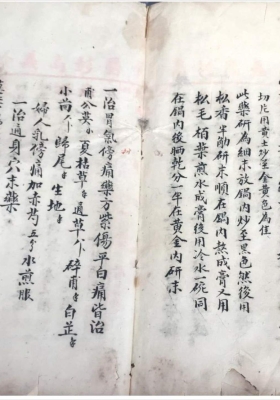 切片用黄土炒至金黄色為佳
此藥研為細末放鍋内炒至黑色然後用
松香 研末順在鍋内熬成膏又用
松毛栢葉煎水成膏後用冷水一碗同
在鍋内後晒乾分一年在黄金内研末
一治胃氣傍痛藥方紫傷平白痛皆治
甫公英 夏枯草 通草 碎甫 白芷
小茴 歸尾 生地
婦人乳傍痛加赤芍五分 水煎服
一治通身穴末藥